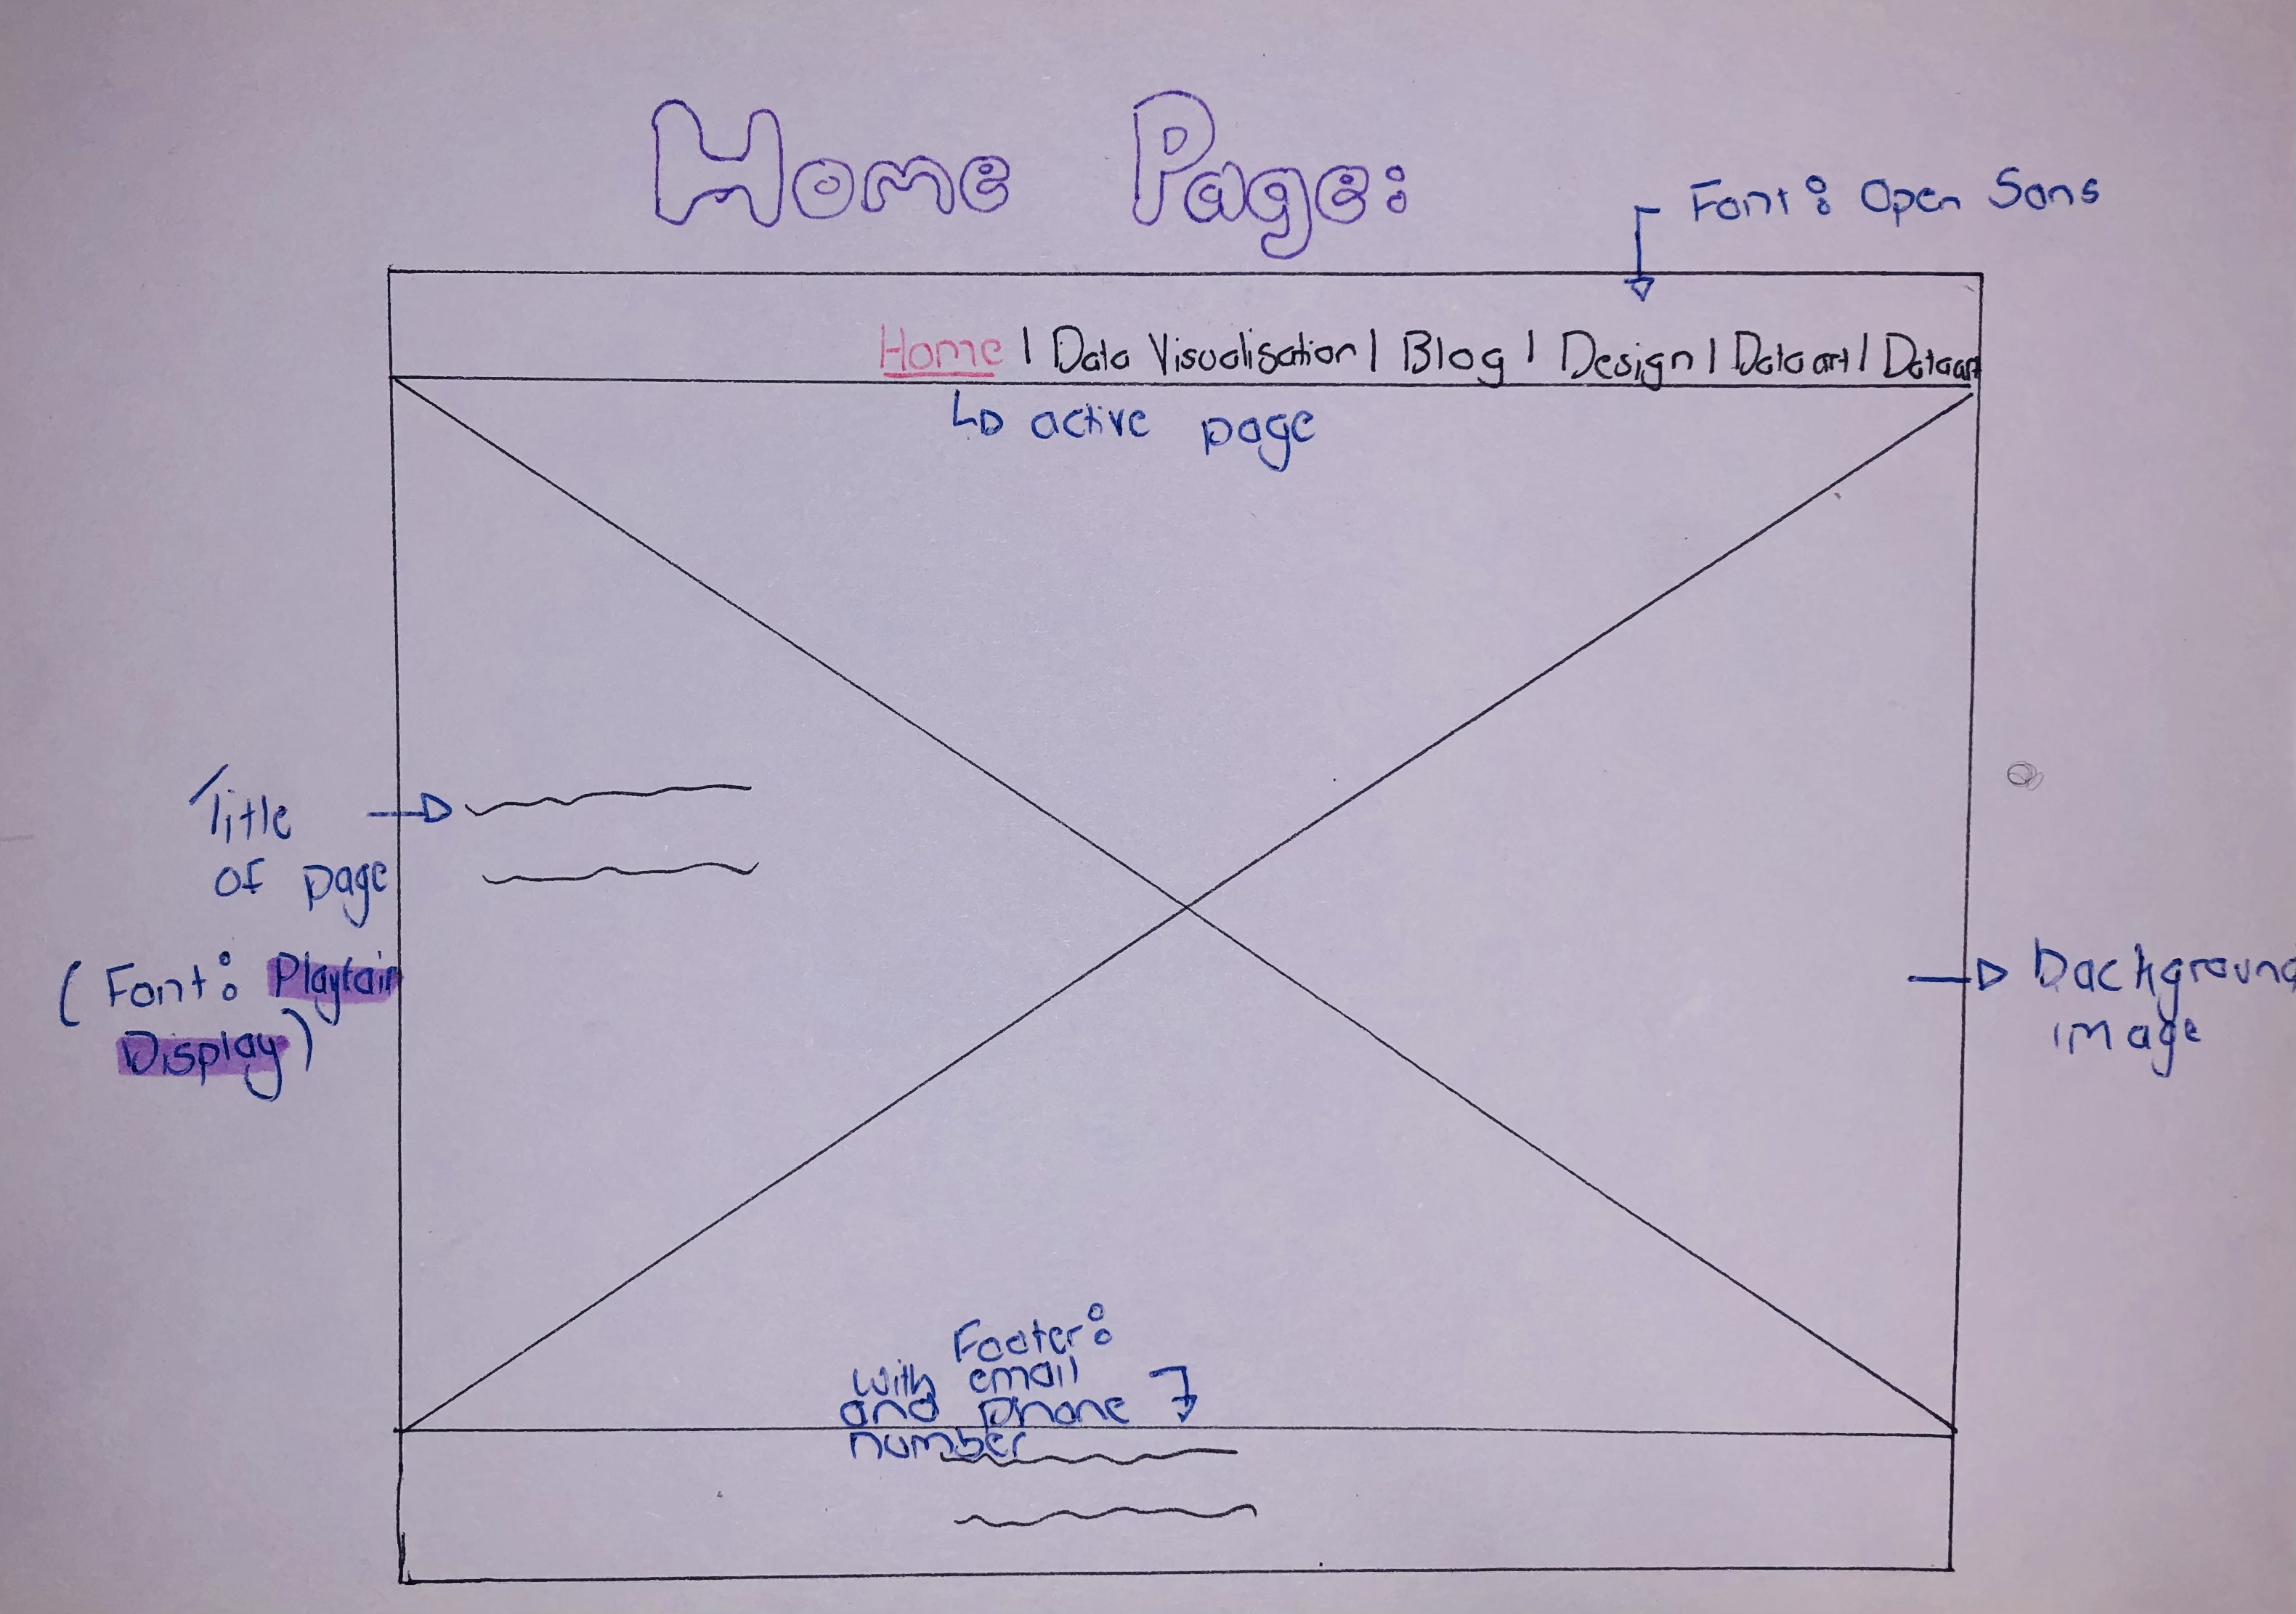 Home Page:
Font: Open Sans
Home | Data Visualisation | Blog | Design | Data art | Data art
active page
Title
of page
(Font: Playfair
Display)
background
image
Footer:
with email
and phone
number